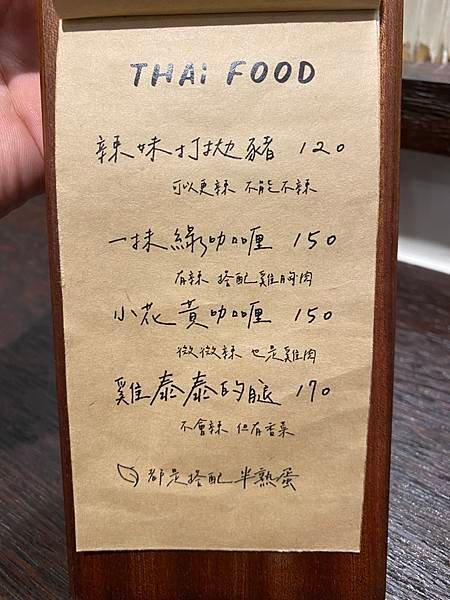 THAI FOOD
辣妹打拋豬 120
可以更辣 不能不辣
一抹綠咖喱 150
有辣 搭配雞胸肉
小花黃咖喱 150
微微辣 也是雞肉
雞泰泰的腿 170
不會辣 但有香菜
都是搭配半熟蛋